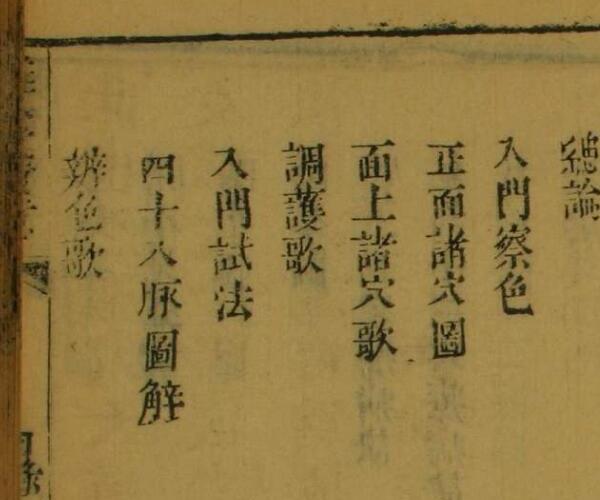 總論
入門察色
正面諸穴圖
面上諸穴歌
調護歌
入門試法
四十八脉圖解
辨色歌
目錄